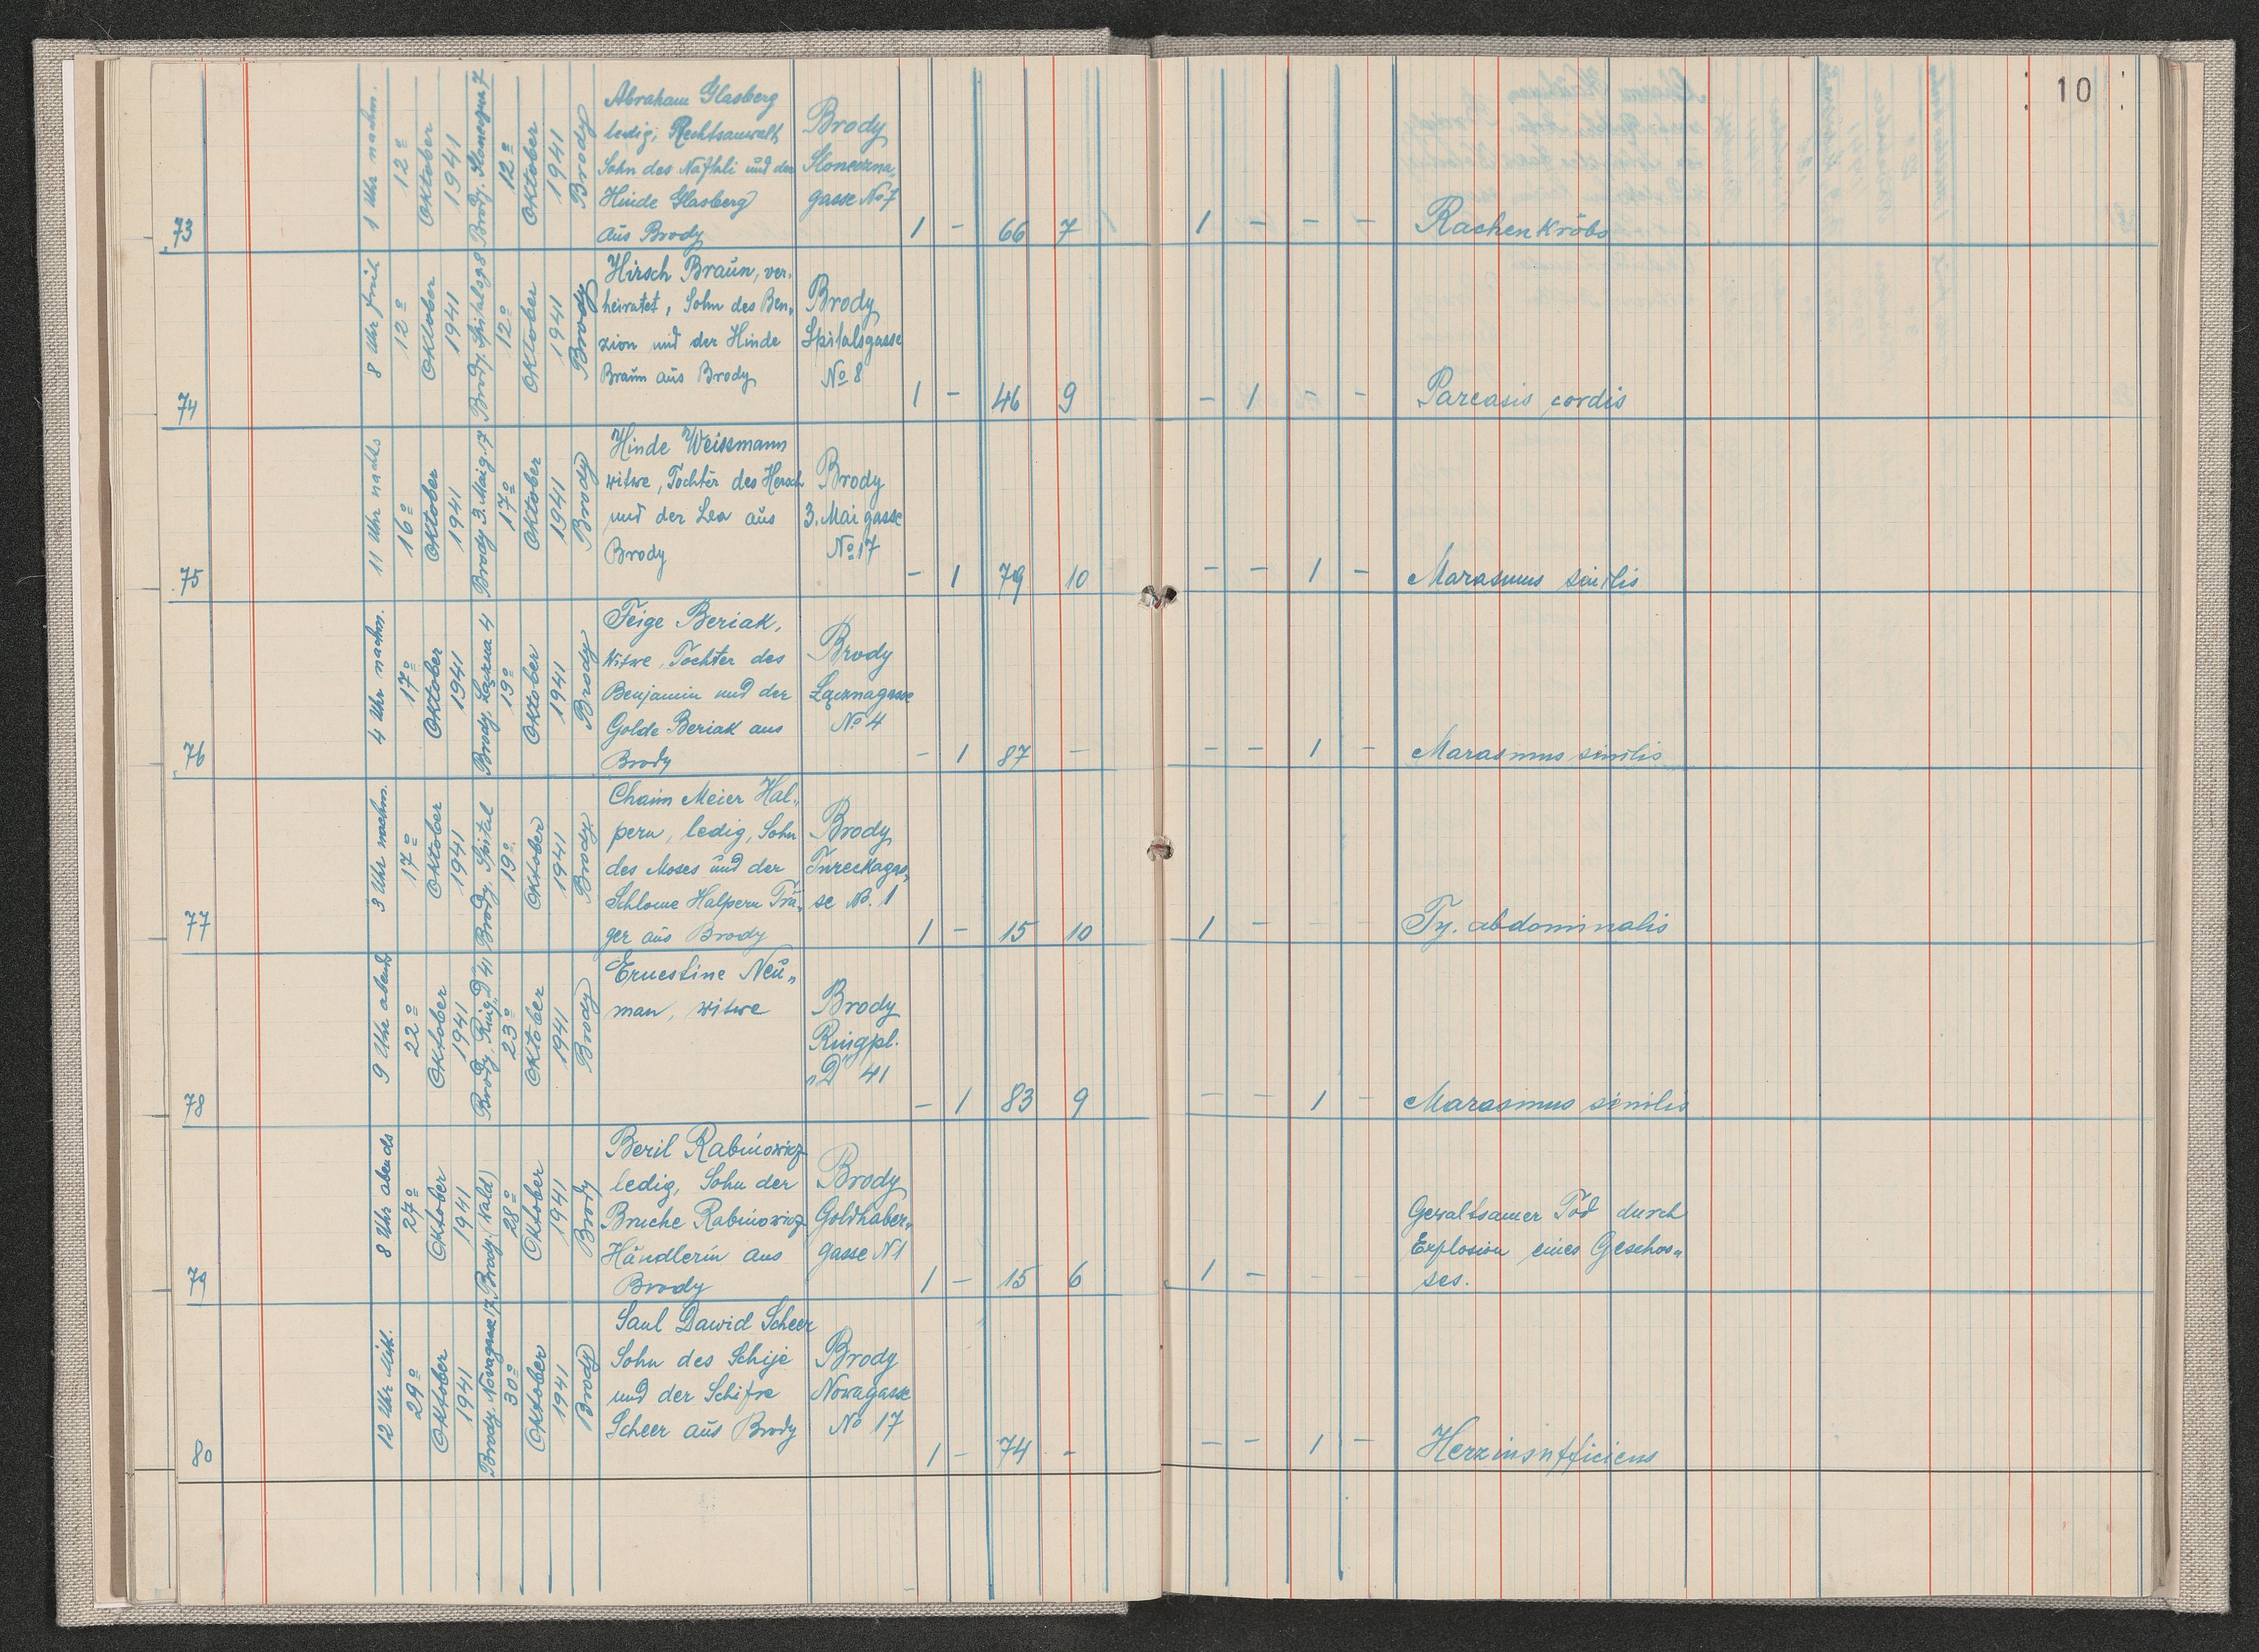 10
73
1 Uhr nachm.
12º
Oktober
1941
Brody
12º
Oktober
1941
Brody
Abraham Glasberg
ledig, Rechtsanwalt
Sohn des Naftali und der
Hinde Glasberg
aus Brody
Brody
Słoneczna„
gasse No 7
1 - 66 7
1 - - -
Rachenkröbs
74
8 Uhr früh
12º
Oktober
1941
Brody, Spitalsg 8
12º
Oktober
1941
Brody
Hirsch Braun, ver„
heiratet, Sohn des Ben„
zion und der Hinde
Braun aus Brody
Brody
Spitalsgasse
No 8
1 - 46 9
- 1 - -
Pareasis cordis
75
11 Uhr nachts
16º
Oktober
1941
Brody 3. Maig. 17
17º
Oktober
1941
Brody
Hinde Weissmann
witwe, Tochter des Hersch
und der Lea aus
Brody
Brody
3. Mai gasse
No 17
- 1 79 10
- - 1 -
Marasmus sinilis
76
4 Uhr nachm.
17º
Oktober
1941
Brody, Łączna 4
19º
Oktober
1941
Brody
Feige Beriak,
Witwe, Tochter des
Benjamin und der
Golde Beriak aus
Brody
Brody
Łącznagasse
No 4
- 1 87 -
- - 1 -
Marasmus sinilis
77
3 Uhr nachm.
17º
Oktober
1941
Brody, Spital
19º
Oktober
1941
Brody
Chaim Meier Hal„
pern, ledig, Sohn
des Moses und der
Schlome Halpern Trä„
ger aus Brody
Brody
Tureckagas„
se No. 1
1 - 15 10
1 - - -
Ty. abdominalis
78
9 Uhr abends
22º
Oktober
1941
Brody, Ring „D" 41
23º
Oktober
1941
Brody
Ernestine Neu„
man, witwe
Brody
Ringpl.
„D" 41
- 1 83 9
- - 1 -
Marasmus sinilis
79
8 Uhr abends
27º
Oktober
1941
Brody (Wald)
28º
Oktober
1941
Brody
Beril Rabinowicz
ledig, Sohn der
Bruche Rabinowicz
Händlerin aus
Brody
Brody
Goldhaber„
gasse N 1
1 - 15 6
1 - - -
Gewaltsamer Tod durch
Explosion eines Geschos„
ses.
80
12 Uhr Mit.
29º
Oktober
1941
Brody, Nowagasse 17
30º
Oktober
1941
Brody
Saul Dawid Scheer
Sohn des Schije
und der Schifre
Scheer aus Brody
Brody
Nowagasse
No 17
1 - 74 -
- - 1 -
Herzinsufficiens